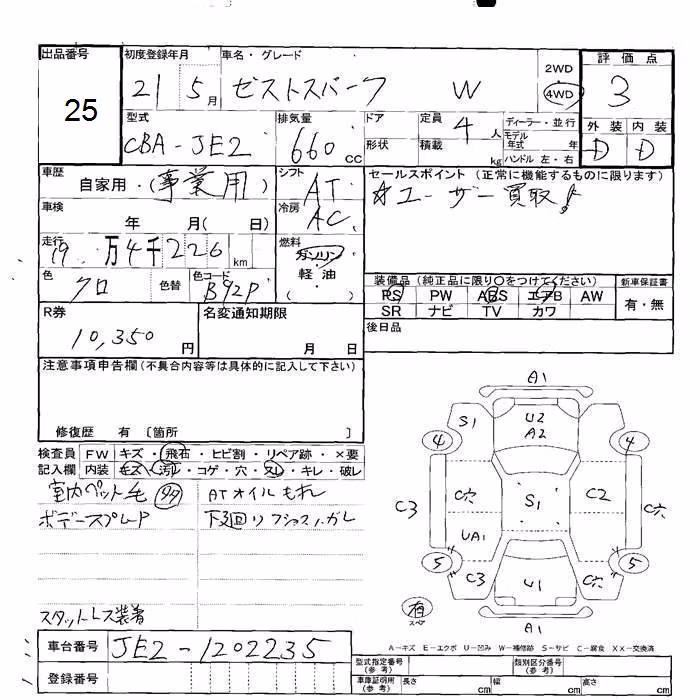 出品番号 初度登録年月 車名・グレード 2WD 評価点
25 21 5月 ゼストスパーク W 4WD 3
型式 排気量 ドア 定員 4人 ディーラー・並行 外装 内装
CBA-JE2 660cc 形状 積載 kg モデル年式 年 ハンドル 左・右 D D
車歴 自家用・(事業用) シフト AT セールスポイント (正常に機能するものに限ります)
車検 年 月( 日) 冷房 AC ☆ユーザー買取!
走行 19万4千226km 燃料 ガソリン
色 クロ 色替 色コード B92P 軽油 ( )
装備品 (純正品に限り〇をつけてください) 新車保証書
PS PW ABS エアB AW 有・無
SR ナビ TV カワ
R券 10,350円 名変通知期限 月 日 後日品
注意事項申告欄 (不具合内容等は具体的に記入して下さい)
修復歴 有 〔箇所 〕
検査員 FW キズ・飛石・ヒビ割・リペア跡・×要
記入欄 内装 キズ・汚れ・コゲ・穴・スレ・キレ・破レ
室内ペット毛 ATオイルもれ
ボデースプレード 下廻り
スタットレス装着
A1
S1 U2
A2
4 4
C3 C穴 S1 C2 C穴
UA1
5 5
C3 U1 C穴
有
スペア A1
A-キズ E-エクボ U-凹み W-補修跡 S-サビ C-腐食 XX-交換済
車台番号 JE2-1202235
型式指定番号 (参考) 類別区分番号
登録番号 車庫証明用 (参考) 長さ cm 幅 cm 高さ cm